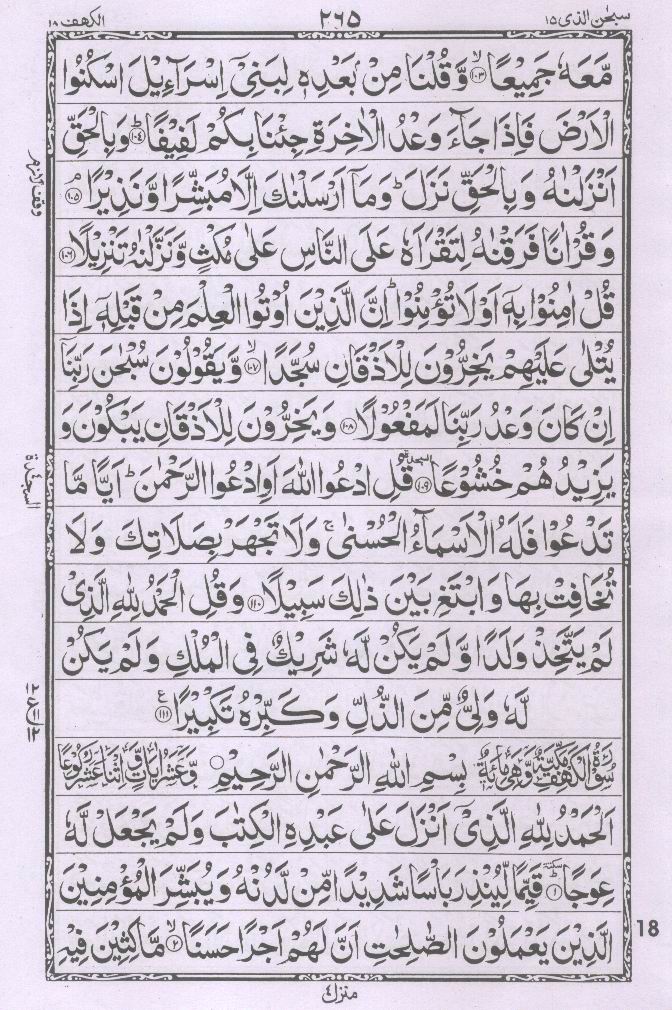 سبحٰن الذی ١٥
٢٦٥
الکهف ١٨
مَّعَهٗ جَمِیْعًا ۙ‏﴿۱۰۳﴾ وَّقُلْنَا مِنْۢ بَعْدِهٖ لِبَنِیْۤ اِسْرَآءِیْلَ اسْكُنُوا
الْاَرْضَ فَاِذَا جَآءَ وَعْدُ الْاٰخِرَةِ جِئْنَا بِكُمْ لَفِیْفًا ؕ‏﴿۱۰۴﴾ وَبِالْحَقِّ
اَنْزَلْنٰهُ وَبِالْحَقِّ نَزَلَ ؕ وَمَاۤ اَرْسَلْنٰكَ اِلَّا مُبَشِّرًا وَّنَذِیْرًا ۘ‏﴿۱۰۵﴾
وَقُرْاٰنًا فَرَقْنٰهُ لِتَقْرَاَهٗ عَلَی النَّاسِ عَلٰی مُكْثٍ وَّنَزَّلْنٰهُ تَنْزِیْلًا ﴿۱۰۶﴾
قُلْ اٰمِنُوْا بِهٖۤ اَوْ لَا تُؤْمِنُوْا ؕ اِنَّ الَّذِیْنَ اُوْتُوا الْعِلْمَ مِنْ قَبْلِهٖۤ اِذَا
یُتْلٰی عَلَیْهِمْ یَخِرُّوْنَ لِلْاَذْقَانِ سُجَّدًا ۙ‏﴿۱۰۷﴾ وَّیَقُوْلُوْنَ سُبْحٰنَ رَبِّنَاۤ
اِنْ كَانَ وَعْدُ رَبِّنَا لَمَفْعُوْلًا ﴿۱۰۸﴾ وَیَخِرُّوْنَ لِلْاَذْقَانِ یَبْكُوْنَ وَ
یَزِیْدُهُمْ خُشُوْعًا ﴿۱۰۹﴾ السجدة قُلِ ادْعُوا اللّٰهَ اَوِ ادْعُوا الرَّحْمٰنَ ؕ اَیًّا مَّا
تَدْعُوْا فَلَهُ الْاَسْمَآءُ الْحُسْنٰی ۚ وَلَا تَجْهَرْ بِصَلَاتِكَ وَلَا
تُخَافِتْ بِهَا وَابْتَغِ بَیْنَ ذٰلِكَ سَبِیْلًا ﴿۱۱۰﴾ وَقُلِ الْحَمْدُ لِلّٰهِ الَّذِیْ
لَمْ یَتَّخِذْ وَلَدًا وَّلَمْ یَكُنْ لَّهٗ شَرِیْكٌ فِی الْمُلْكِ وَلَمْ یَكُنْ
لَّهٗ وَلِیٌّ مِّنَ الذُّلِّ وَكَبِّرْهُ تَكْبِیْرًا ﴿۱۱۱﴾ ع
سُوْرَةُ الْكَهْفِ مَكِّیَّةٌ وَّهِیَ مِائَةٌ بِسْمِ اللّٰهِ الرَّحْمٰنِ الرَّحِیْمِ وَّعَشْرُ اٰیَاتٍ وَّاثْنَا عَشَرَ رُكُوْعًا
اَلْحَمْدُ لِلّٰهِ الَّذِیْۤ اَنْزَلَ عَلٰی عَبْدِهِ الْكِتٰبَ وَلَمْ یَجْعَلْ لَّهٗ
عِوَجًا ؕ سكتة ﴿۱﴾ قَیِّمًا لِّیُنْذِرَ بَاْسًا شَدِیْدًا مِّنْ لَّدُنْهُ وَیُبَشِّرَ الْمُؤْمِنِیْنَ
الَّذِیْنَ یَعْمَلُوْنَ الصّٰلِحٰتِ اَنَّ لَهُمْ اَجْرًا حَسَنًا ۙ‏﴿۲﴾ مَّاكِثِیْنَ فِیْهِ
منزل ٤
السجدة ٤
18